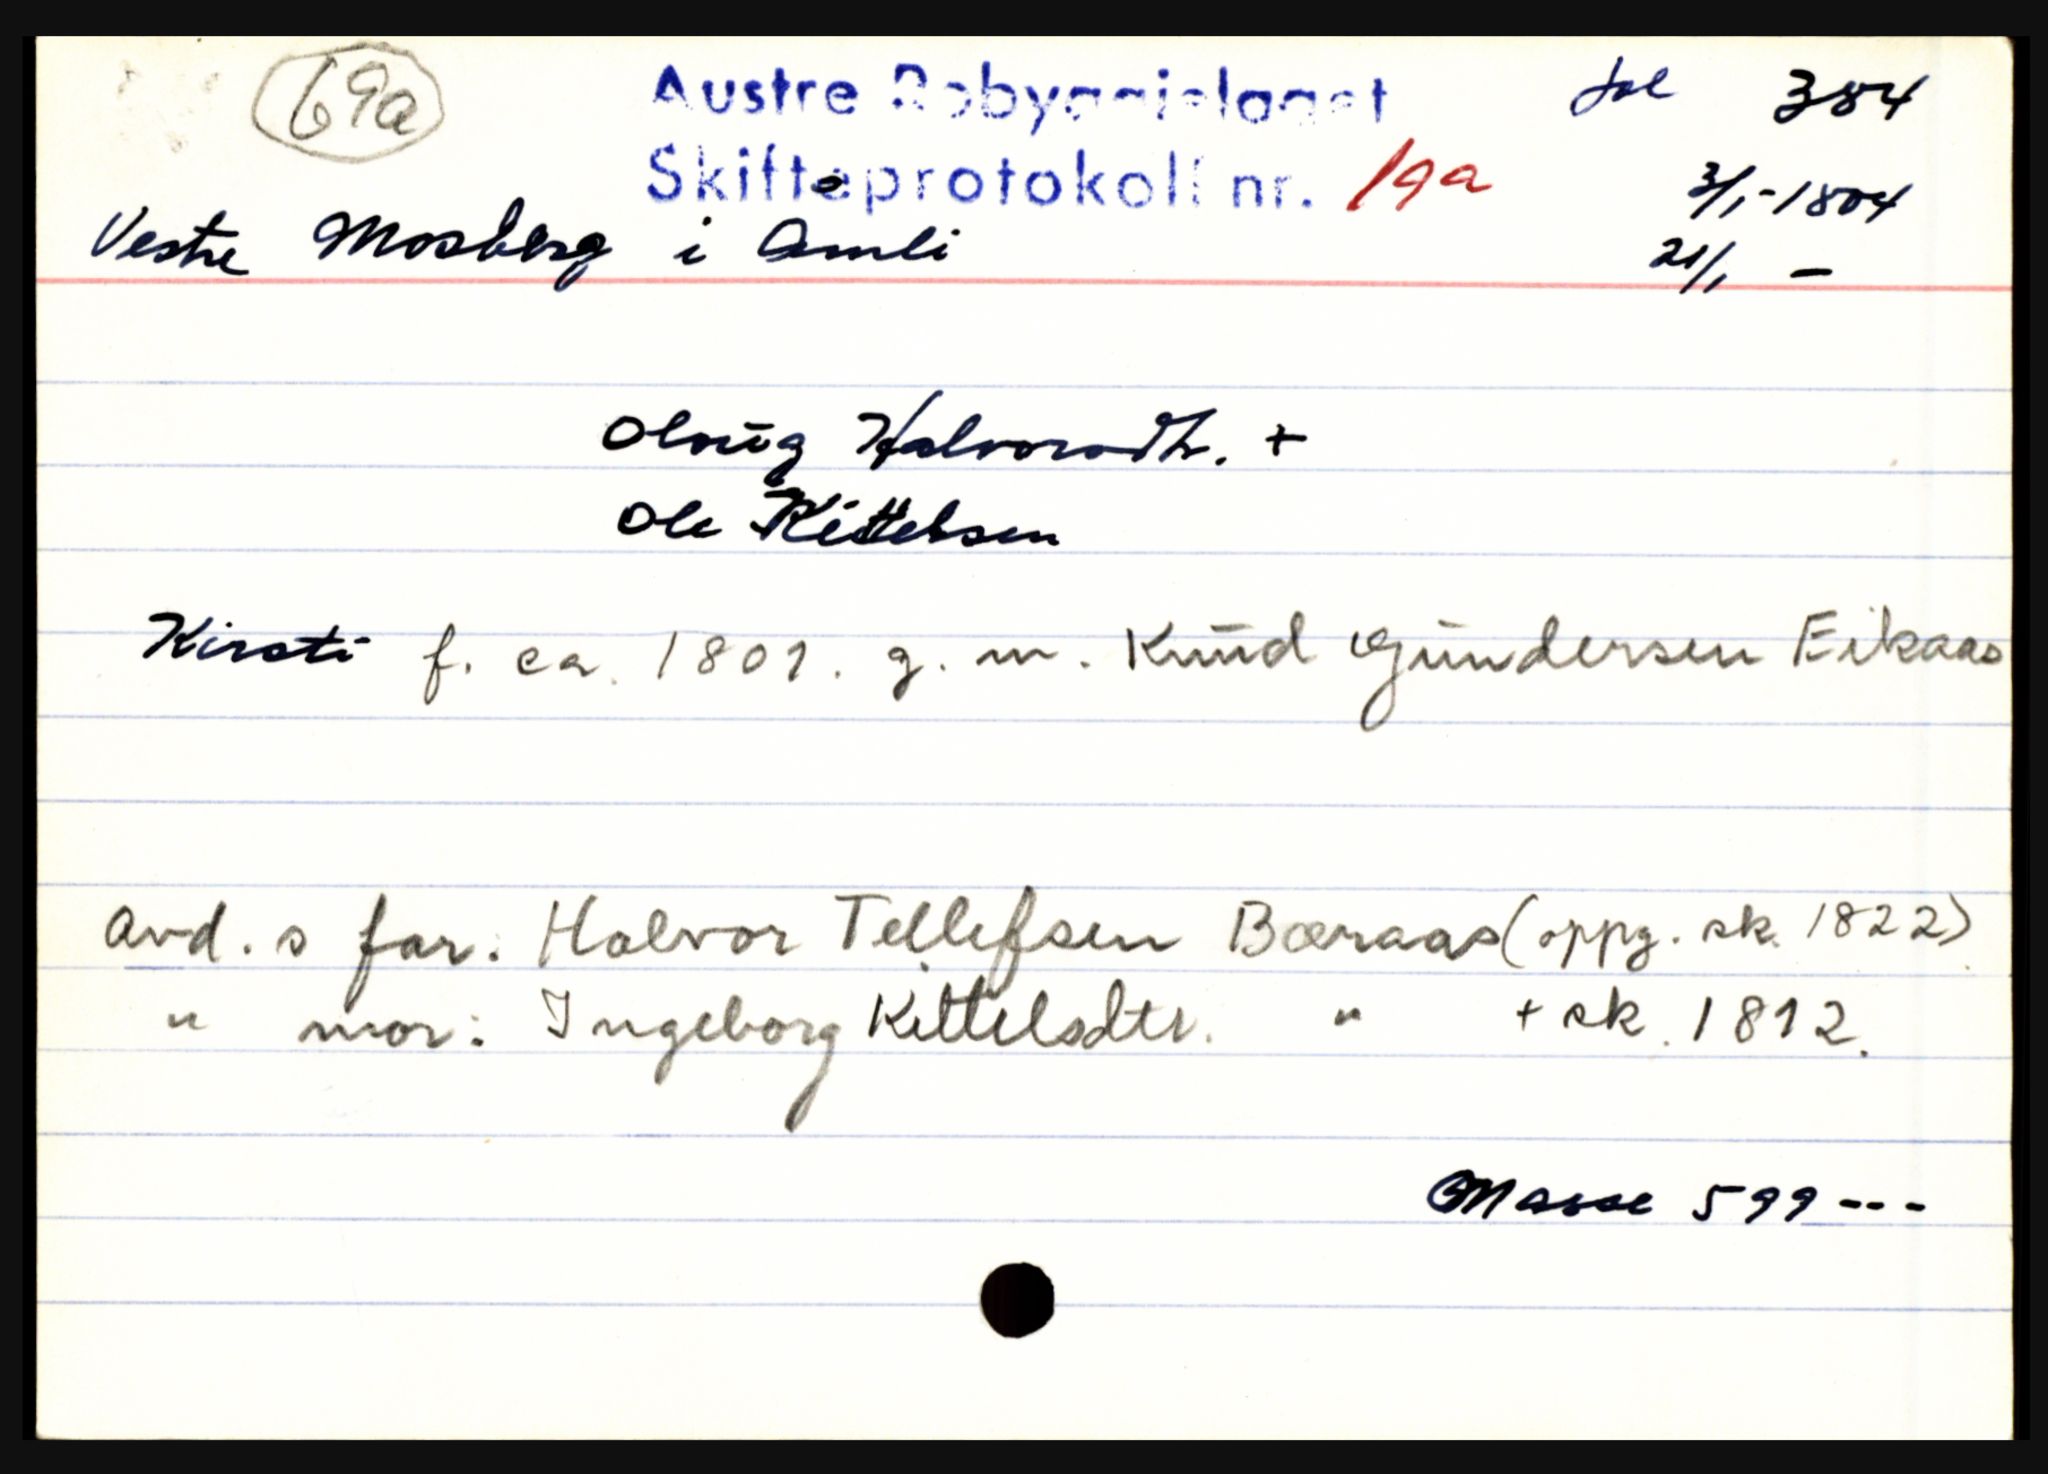 69a
Austre Robyggjelaget fol 384
Skifteprotokoll nr. 19a 3/1-1804
Vestre Mosberg i Åmli 21/1 –
Olaug Halvorsdtr. +
Ole Kittelsen
Kirsti f. ca. 1801. g. m. Knud Gundersen Eikaas
avd. s far: Halvor Tellefsen Bæraas (oppg. sk. 1822)
" mor: Ingeborg Kittelsdtr. " + sk. 1812.
Masse 599 ---